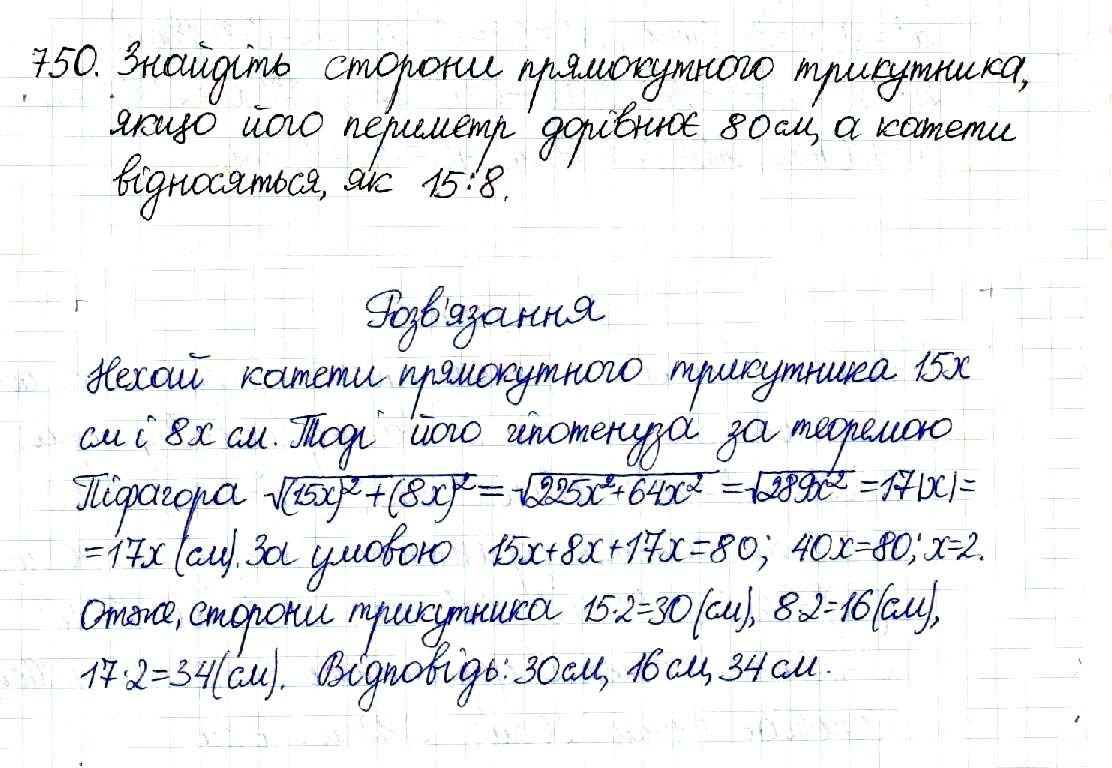 750. Знайдіть сторони прямокутного трикутника,
якщо його периметр дорівнює 80 см, а катети
відносяться, як 15:8.
Розв'язання
Нехай катети прямокутного трикутника 15x
см і 8x см. Тоді його гіпотенуза за теоремою
Піфагора √((15x)²+(8x)²) = √(225x²+64x²) = √(289x²) = 17|x| =
= 17x (см). За умовою 15x+8x+17x=80; 40x=80; x=2.
Отже, сторони трикутника 15·2=30 (см), 8·2=16 (см),
17·2=34 (см). Відповідь: 30 см, 16 см, 34 см.